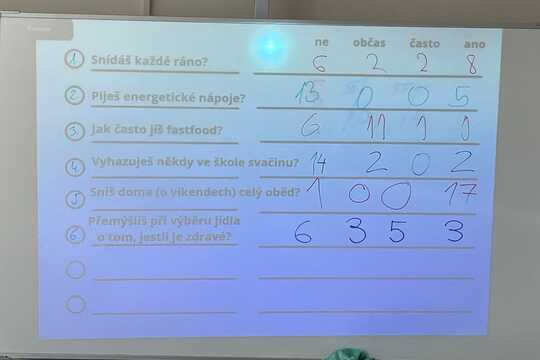 ne občas často ano
1 Snídáš každé ráno? 6 2 2 8
2 Piješ energetické nápoje? 13 0 0 5
3. Jak často jíš fastfood? 6 11 1 0
4. Vyhazuješ někdy ve škole svačinu? 14 2 0 2
5 Sníš doma (o víkendech) celý oběd? 1 0 0 17
6. Přemýšlíš při výběru jídla
o tom, jestli je zdravé? 6 3 5 3